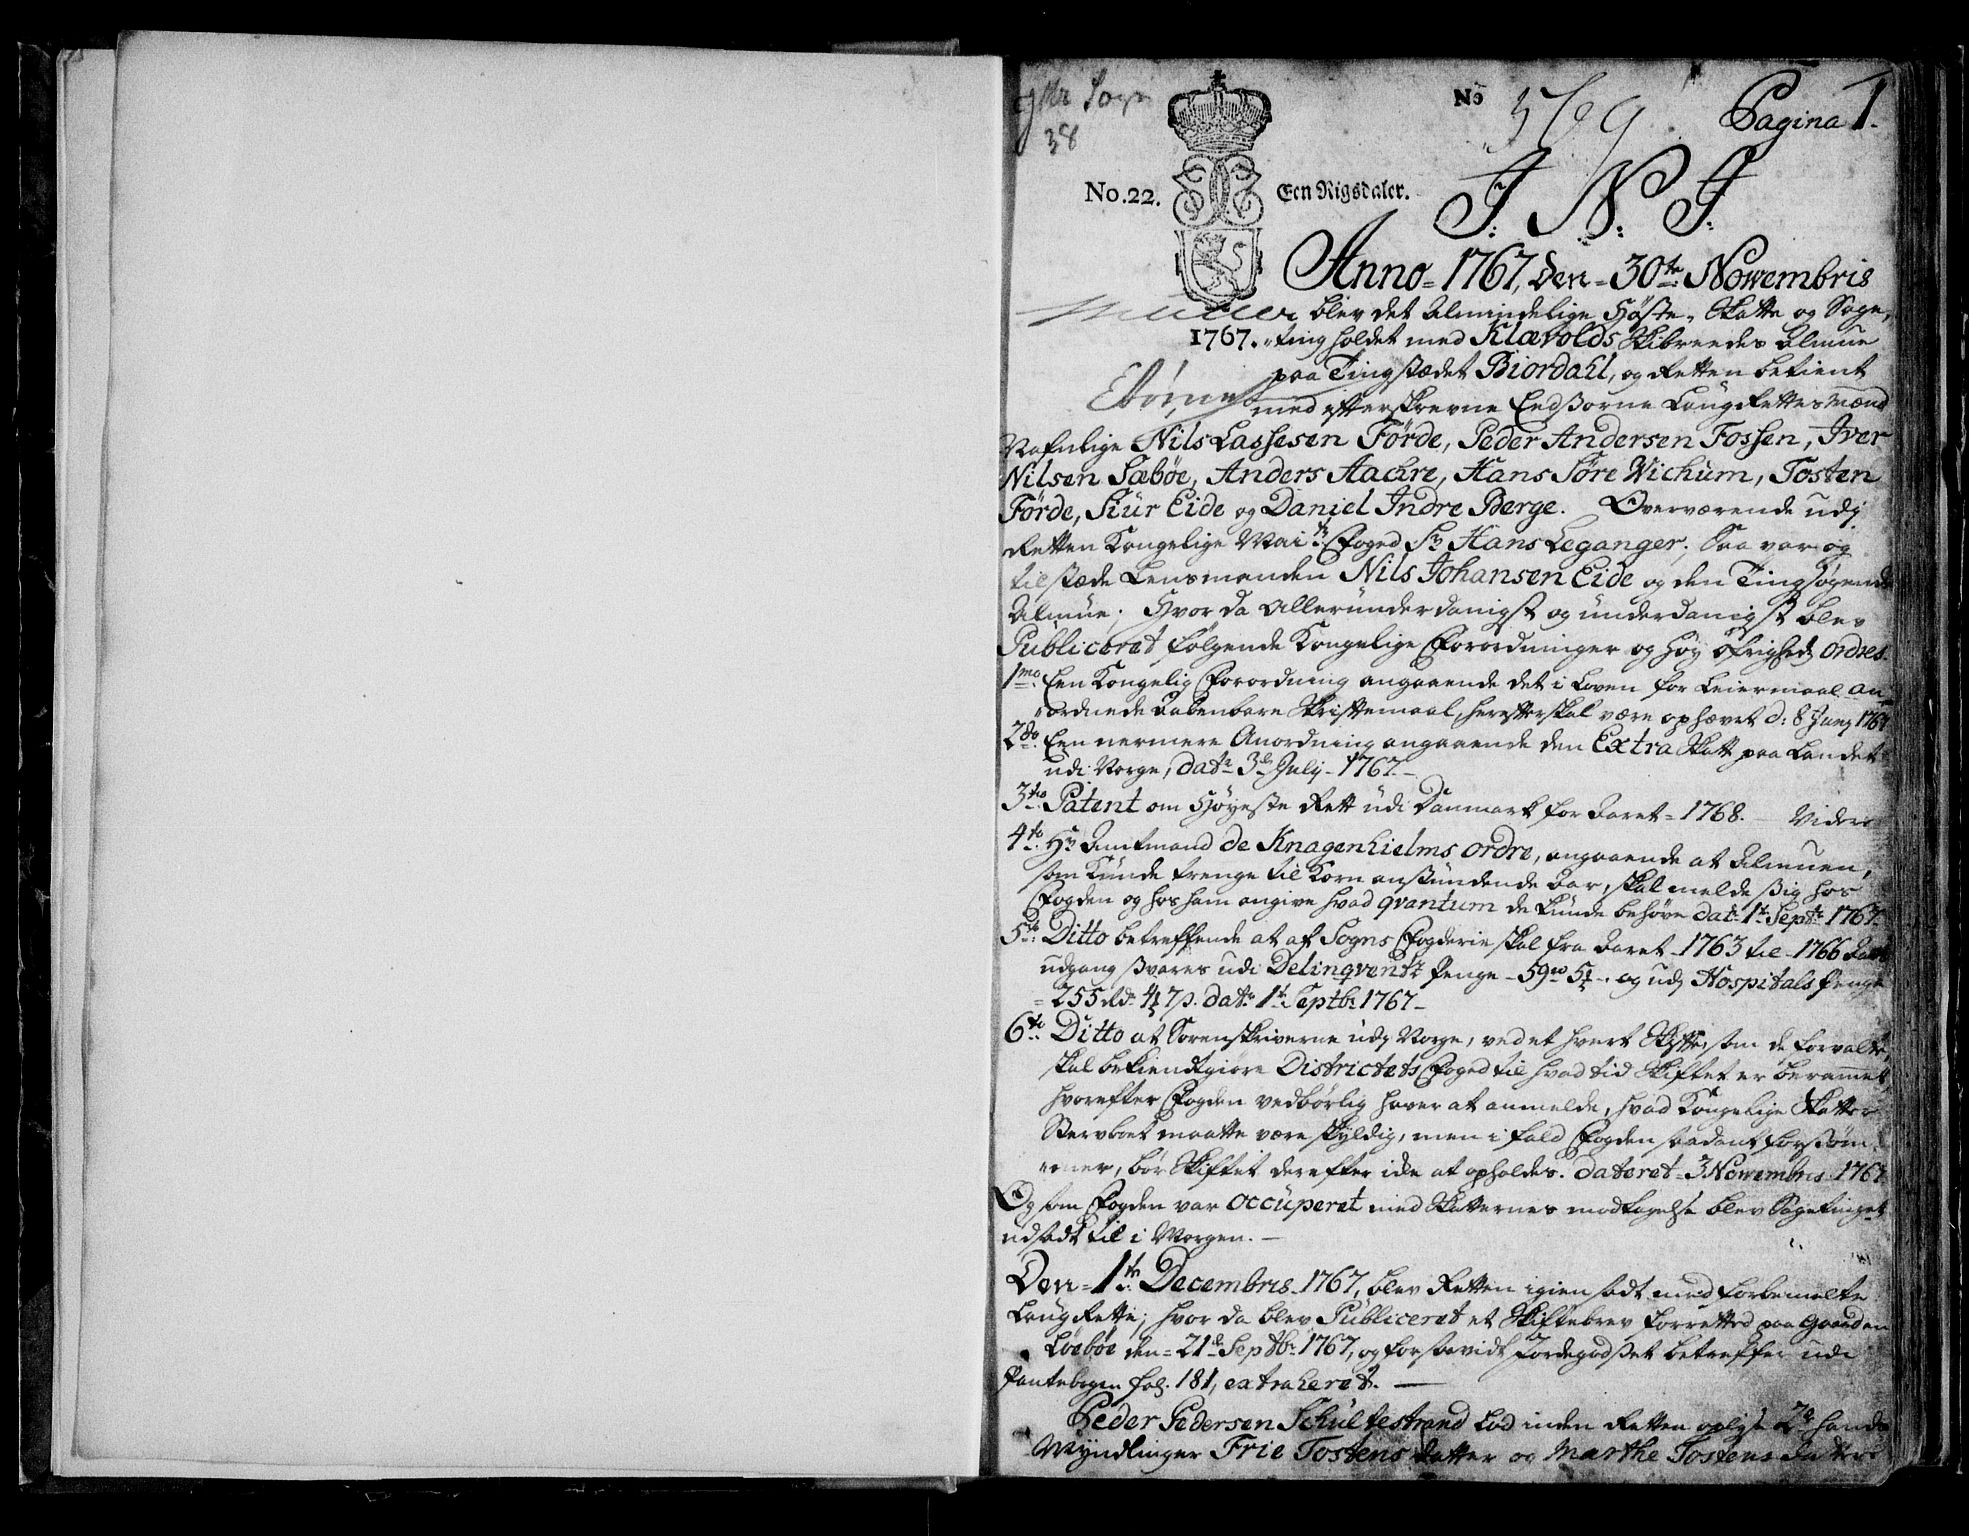 Ytr Sogn
38
No 569
Pagina 1.
No. 22. Een Rigsdaler.
J: N: J:
Anno 1767, den 30te Novembris
blev det Almindelige Höste, Skatte og Sage,
1767. ting holdet med Klævolds Skibreedes Almue
paa Tingstædet Biordahl, og Retten betient
med efterskrevne Eedsorne LaugRettesmænd
Nafnlige Nils Lassesen Förde, Peder Andersen Fossen, Iver
Nilsen Sæbøe, Anders Aachre, Hans Søre Wichum, Tosten
Förde, Siur Eide og Daniel Indre Berge. Overværende udj
Retten Kongelige Maits Foged Sr Hans Leganger; Saa var og
tilstæde Lensmanden Nils Johansen Eide og den Tingsøgende
Almue; Hvor da Allerunderdanigst og underdanigst blev
Publiceret følgende Kongelige Forordninger og Høy Øfrigheds ordres.
1mo Een Kongelig Forordning angaaende det i Loven for Leiermaal an
ordnede Aabenbare Skriftemaal, herefter skal være ophævet d: 8 Junj 1767
2do Een nermere Anordning angaaende den Extra Skatt paa Landet
udi Norge, dat 3de July 1767.
3tio Patent om Høyeste Rett udi Danmark for Aaret 1768. Videre
4to Hr Amtmand de Knagenhielms ordre, angaaende at Almuen,
som kunde trenge til Korn anstundende Aar, skal melde sig hos
Fogden og hos ham angive hvad qvantum de kunde behøve dat: 1te Septr 1767.
5to Ditto betreffende at af Sogns Fogderie skal fra Aaret 1763 til 1766 Aars
udgang svares udi Delinqvent Penge 59 rd 5 og udj Hospitals Penge
255 Rd 4 7 s. dat 1te Septbr 1767
6to Ditto at Sorenskriverne udj Norge, ved et hvert Skifte, som de forvalte,
skal bekiendtgiøre Districtets Foged til hvad tid Skiftet er berammet,
hvorefter Fogden vedbørlig haver at anmelde, hvad Kongelige Skatter
Stervboet maatte være skyldig, men i fald Fogden saadant forsøm
mer, bør Skiftet derefter ikke at opholdes. dateret 3 Novembris 1767
Og som Fogden var occuperet med Skatternes modtagelse blev Sagetinget
udsadt til i Morgen.
Den 1te Decembris 1767, blev Retten igien sadt med forbemelte
LaugRette; hvor da blev Publiceret et Skiftebrev forretted paa Gaarden
Löebøe den 21de Septbr 1767, og forsaavidt Jordegodset betreffer udi
Pantebogen fol. 181, extraheret.
Peder Pedersen Schultestrand lod inden Retten oplyse 2de hands
Myndlinger Frie Tostens datter og Marthe Tostens datters